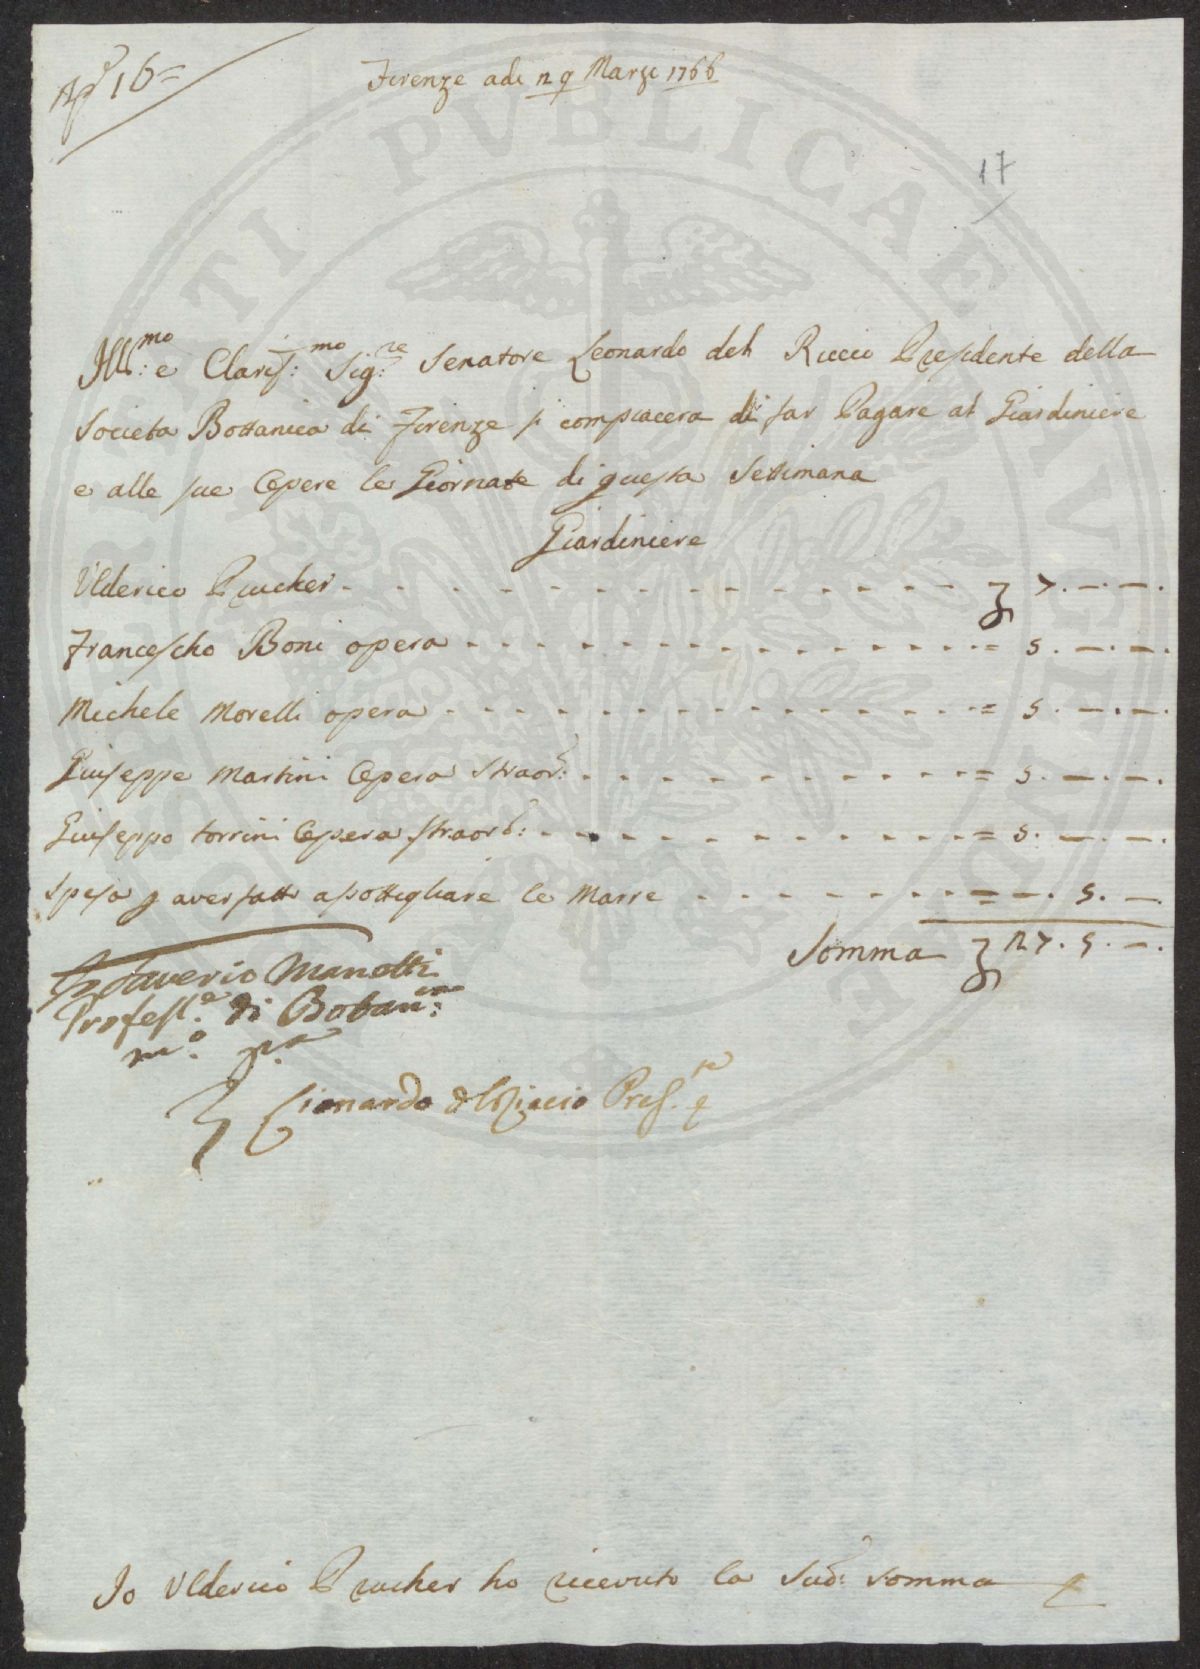 Ap.e 16=
Firenze adi 29 Marzi 1766
17
Ill:mo e Claris:mo Sig:re Senatore Leonardo del Riccio Presidente della
Societa Bottanica di Firenze si compiacera di far Pagare al Giardiniere
e alle sue Opere le Giornate di questa Settimana
Giardiniere
Ulderico Prucker - - - 7. —. —.
Francescho Boni opera - - - = 5. —. —.
Michele Morelli opera - - - = 5. —. —.
Giuseppe Martini Opera Straor: - - - = 5. —. —.
Giuseppo torrini Opera straord: - - - = 5. —. —.
Spesa p aver fatto asottigliare le Marre - - - = —. 5. —.
Somma 27. 5. —.
Saverio Manetti
Profess.e di Botan:ca
m.o p.a
Lionardo del Riccio Pres.te
Io Ulderico Prucker ho ricevuto la Sud: somma
PUBLICAE